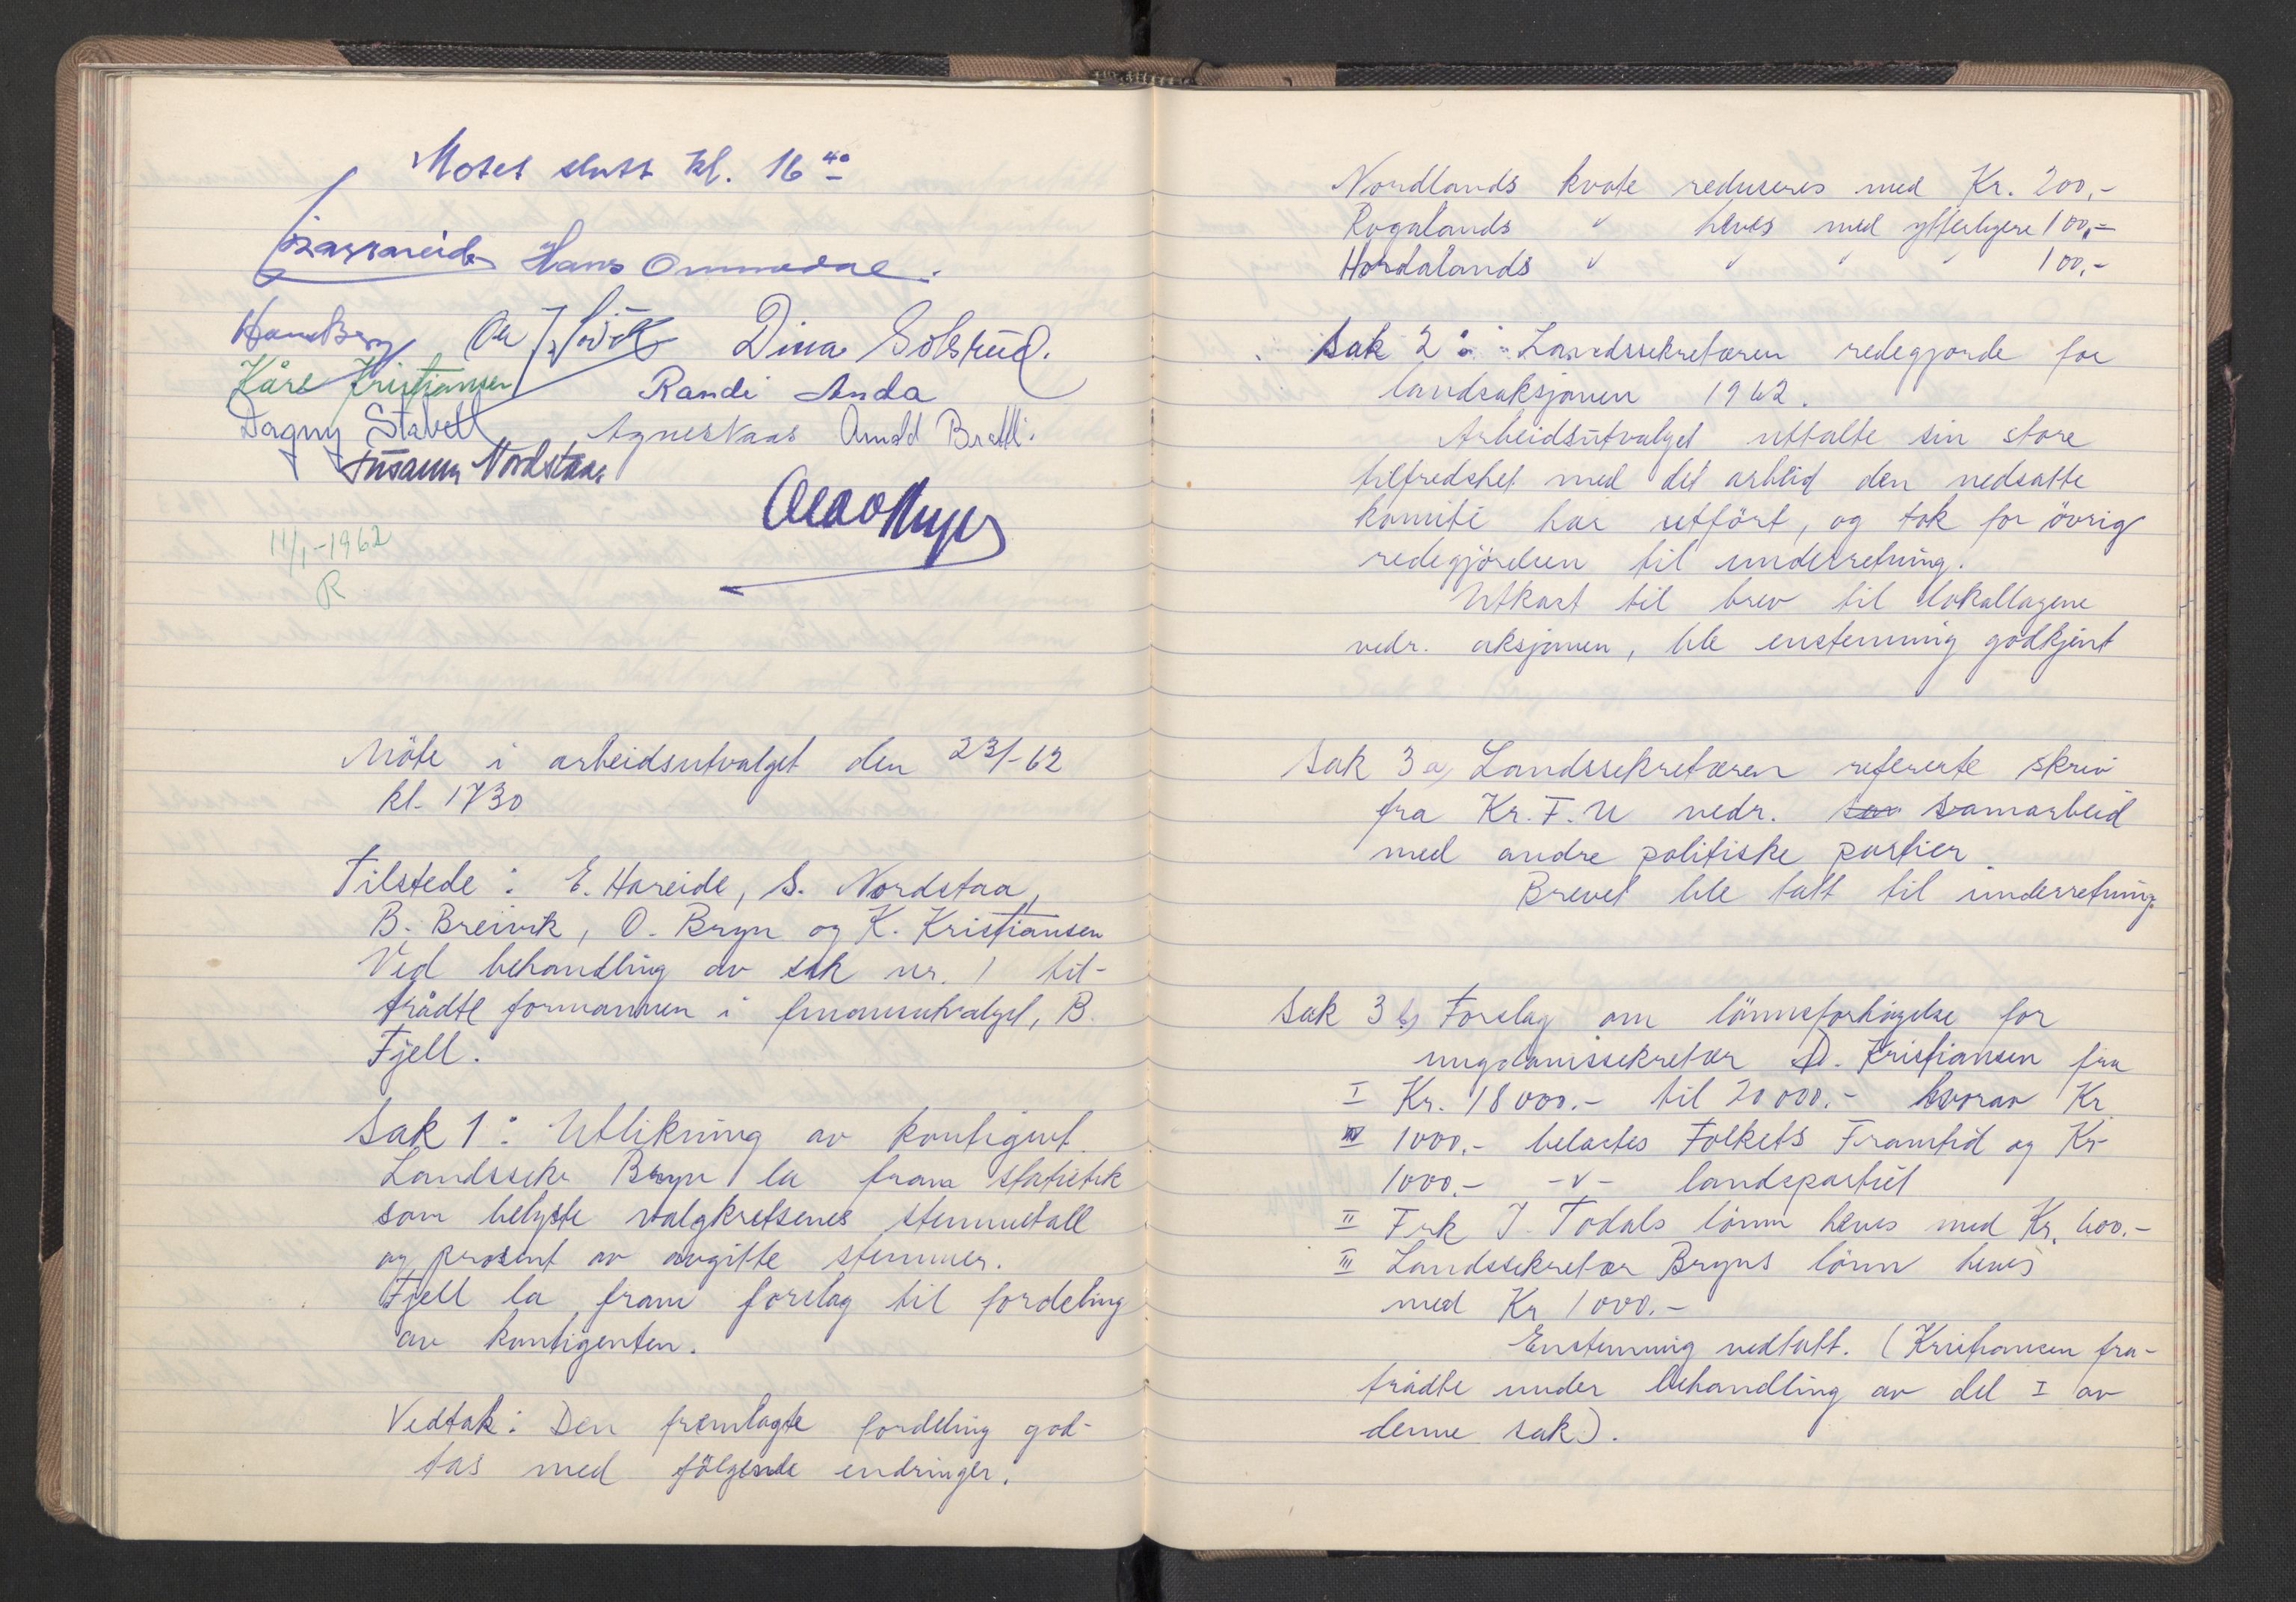 Møtet slutt kl. 16 40
Hans Ommedal.
Hans Berg Dina Solsrud.
Kåre Kristiansen Randi Anda
Dagny Stavell Agnes Naas Arnold Bratli.
Susanna Nordstaa
11/1-1962
R
Möte i arbeidsutvalget den 23/-62
kl. 1730
Tilstede: E. Hareide, S. Nordstaa,
B. Breivik, O. Bryn og K. Kristiansen
Ved behandling av sak nr. 1 til-
trådte formannen i finansutvalget, B.
Fjell.
Sak 1: Utlikning av kontigent.
Landssekr Bryn la fram statistik
som belyste valgkretsenes stemmetall
og prosent av avgitte stemmer.
Fjell la fram forslag til fordeling
av kontigenten.
Vedtak: Den fremlagte fordeling god-
tas med fölgende endringer:
Nordlands kvote reduseres med Kr. 200,-
Rogalands " heves med ytterligere 100,-
Hordalands " " " " 100,-
Sak 2: Landssekretæren redegjorde for
landsaksjonen 1962.
Arbeidsutvalget uttalte sin store
tilfredshet med det arbeid den nedsatte
komité har utfört, og tok for övrig
redegjörelsen til underretning.
Utkast til brev til lokallagene
vedr. aksjonen, ble enstemmig godkjent
Sak 3 a) Landssekretæren refererte skriv
fra Kr. F. U vedr. sam samarbeid
med andre politiske partier.
Brevet ble tatt til underretning.
Sak 3 b) Forslag om lönnsforhöyelse for
ungdomssekretær O. Kristiansen fra
I Kr. 18000.- til 20000.- hvorav Kr
1000.- belastes Folkets Framtid og Kr
1000.- -"- landspartiet
II Frk J. Todals lönn heves med Kr. 600.-
III Landssekretær Bryns lönn heves
med Kr 1000.-
Enstemmig vedtatt. (Kristiansen fra-
trådte under behandling av del I av
denne sak).